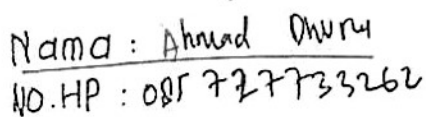 Nama : Ahmad
NO.HP : 085727733262